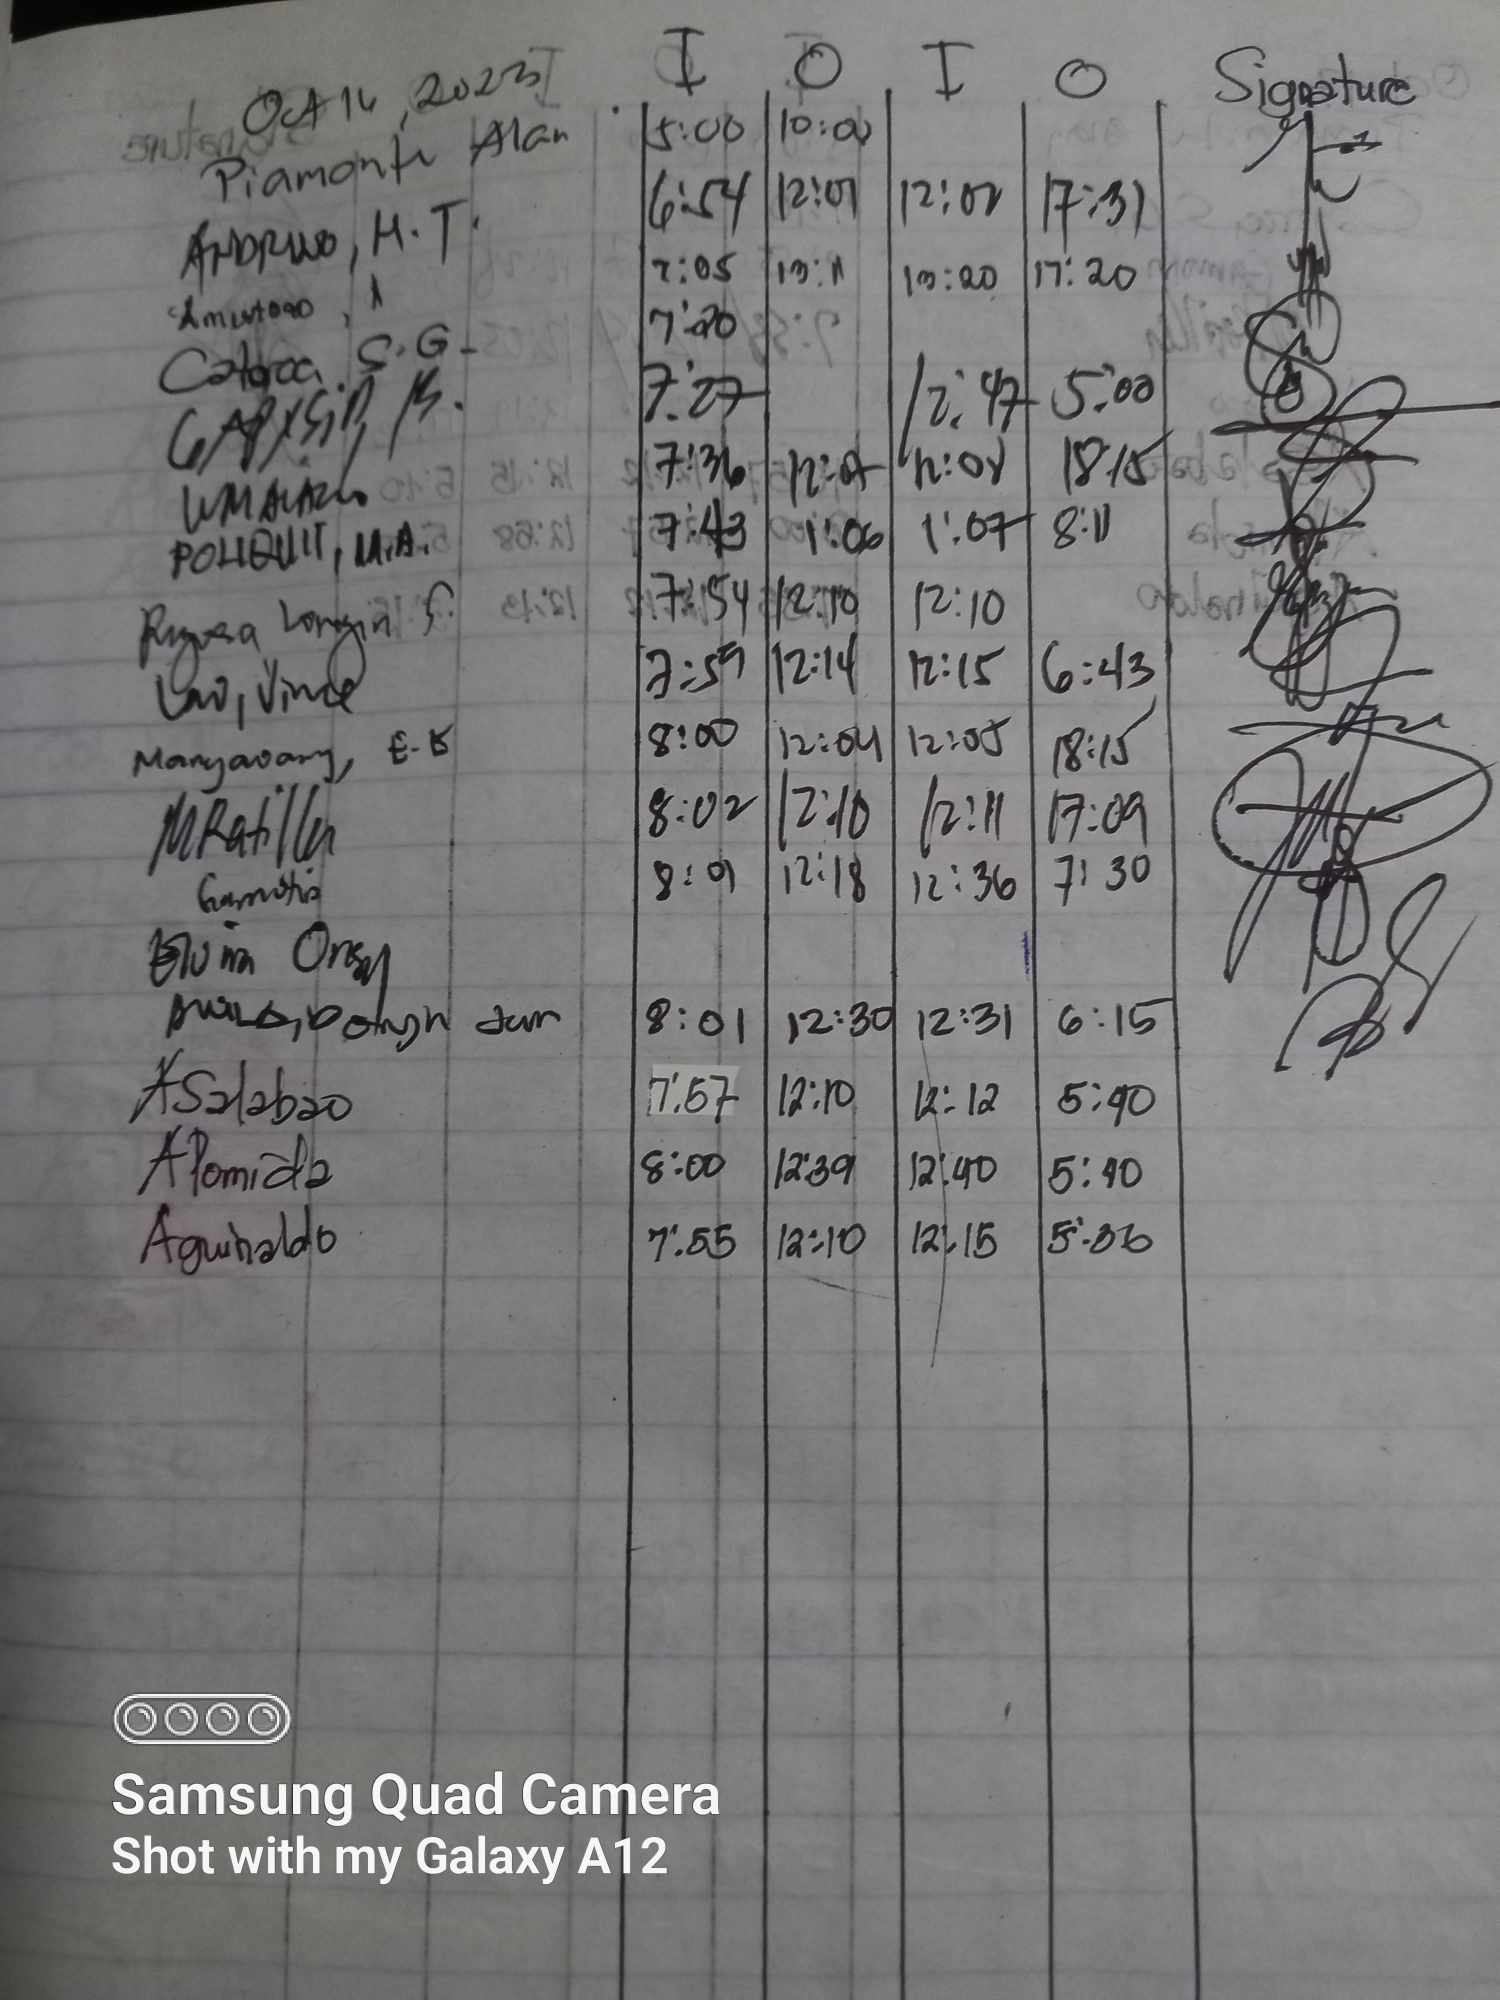 I O I O Signature
Oct 16, 2023
Piamonte Alan 5:00 10:00
H.T. 6:54 12:01 12:02 17:31
7:05 13:11 13:20 17:20
Catorce, S.G. 7:20
7:27 12:47 5:00
7:36 12:07 12:08 18:15
POLIQUIT, M.A. 7:43 1:06 1:07 8:11
7:54 12:10 12:10
Lao, Vince 7:59 12:14 12:15 6:43
E.B 8:00 12:04 12:05 18:15
MRatilla 8:02 12:10 12:11 17:09
Gamotis 8:01 12:18 12:36 7:30
Jun 8:01 12:30 12:31 6:15
ASalabao 7:57 12:10 12:12 5:40
APomida 8:00 12:39 12:40 5:40
Aguinaldo 7:55 12:10 12:15 5:36
Samsung Quad Camera
Shot with my Galaxy A12